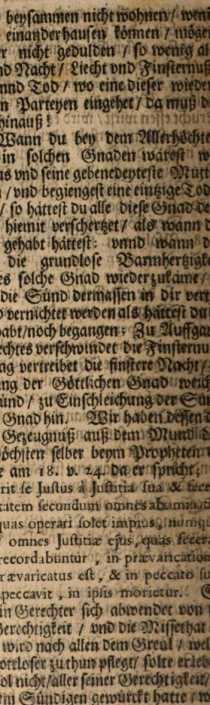 beysammen nicht wohnen / weni
einanderhausen können / möge
r nicht gedulden / so wenig al
nd Nacht / Liecht vnd Finsternuß
nnd Tod / wo eine dieser wieder
n Parteyen eingehet / da muß d
hinauß!
Wann du bey dem Allerhöchste
in solchen Gnaden wärest w
us vnd seine gebenedeyteste Mutt
/ vnd begiengest eine eintzige Tod
/ so hättest du alle diese Gnad de
hiemit verschertzet / als wann d
gehabt hättest: vnnd wann d
die grundlose Barmhertzigke
es solche Gnad wieder zukäme /
die Sünd dermassen in dir vert
d vernichtet werden als hättest du
abt / noch begangen: Zu Auffgan
echtes verschwindet die Finsternu
ag vertreibt die finstere Nacht /
ng der Göttlichen Gnad weich
ünd / zu Einschleichung der Sün
Gnad hin. Wir haben dessen
Gezeugnuß auß dem Mund d
öchsten selber beym Propheten
e am 18. v. 24. da er spricht:
rit se Justus à Justitia sua & fece
tatem secundum omnes abomina
quas operari solet impius, numqu
omnes Justitiæ ejus, quas fecera
recordabuntur, in prævarication
rævaricatus est, & in peccato su
peccavit, in ipsis morietur.
in Gerechter sich abwendet von
Gerechtigkeit / vnd die Missethat
wird nach allem dem Greul / wel
ottloser zu thun pflegt / solte er leb
ol nicht / aller seiner Gerechtigkeit /
im Sündigen gewürckt hatte / w